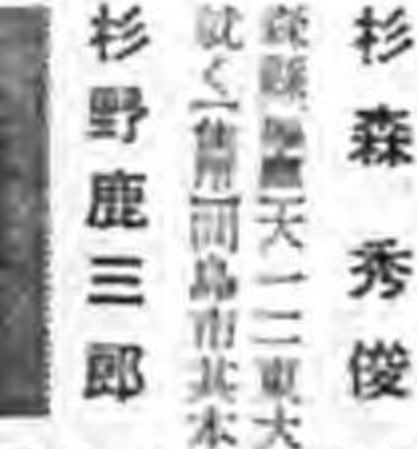 杉森秀俊
天一二東大
就く【住所】間島市其本
杉野鹿三郎